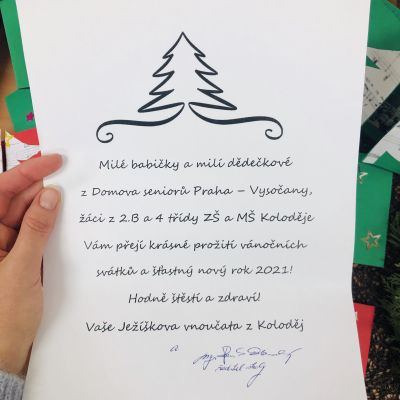 Milé babičky a milí dědečkové
z Domova seniorů Praha – Vysočany,
žáci z 2.B a 4 třídy ZŠ a MŠ Koloděje
Vám přejí krásné prožití vánočních
svátků a šťastný nový rok 2021!
Hodně štěstí a zdraví!
Vaše Ježíškova vnoučata z Koloděj
a